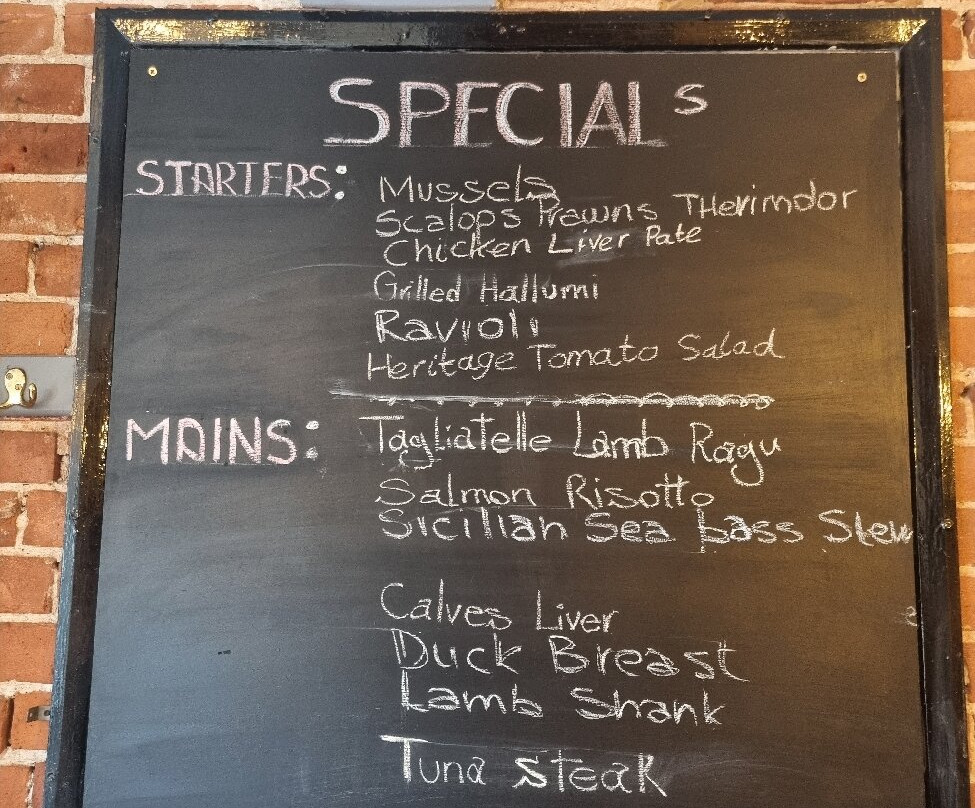 SPECIALS
STARTERS: Mussels
Scalops Prawns THerimdor
Chicken Liver Pate
Grilled Hallumi
Ravioli
Heritage Tomato Salad
MAINS: Tagliatelle Lamb Ragu
Salmon Risotto
Sicilian Sea bass Stew
Calves Liver
Duck Breast
Lamb Shank
Tuna Steak